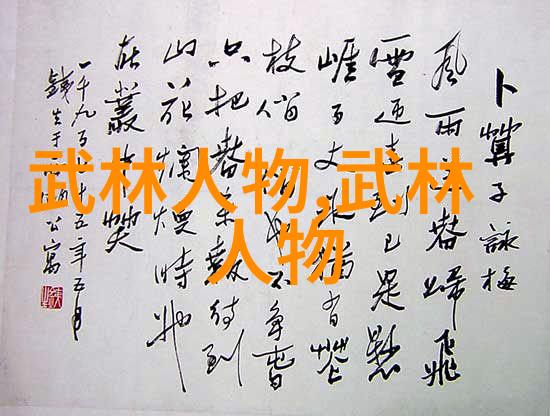 卜算子 詠梅
風雨送春歸飛
雪迎春到已是懸
崖百丈冰猶有花
枝俏俏也不爭春
只把春來報待到
山花爛熳時她
在叢中笑
一千九百十五年五月
公寓
武林人物,武林
人物